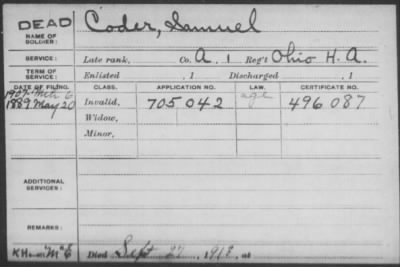 DEAD Coder, Samuel
NAME OF SOLDIER:
SERVICE: Late rank, Co. A. 1 Reg't Ohio H. A.
TERM OF SERVICE: Enlisted , 1 Discharged , 1
DATE OF FILING. CLASS. APPLICATION NO. LAW. CERTIFICATE NO.
1907 Mch 6 age
1889 May 20 Invalid, 705042 496087
Widow,
Minor,
ADDITIONAL SERVICES:
REMARKS:
Died Sept 27, 1918, at